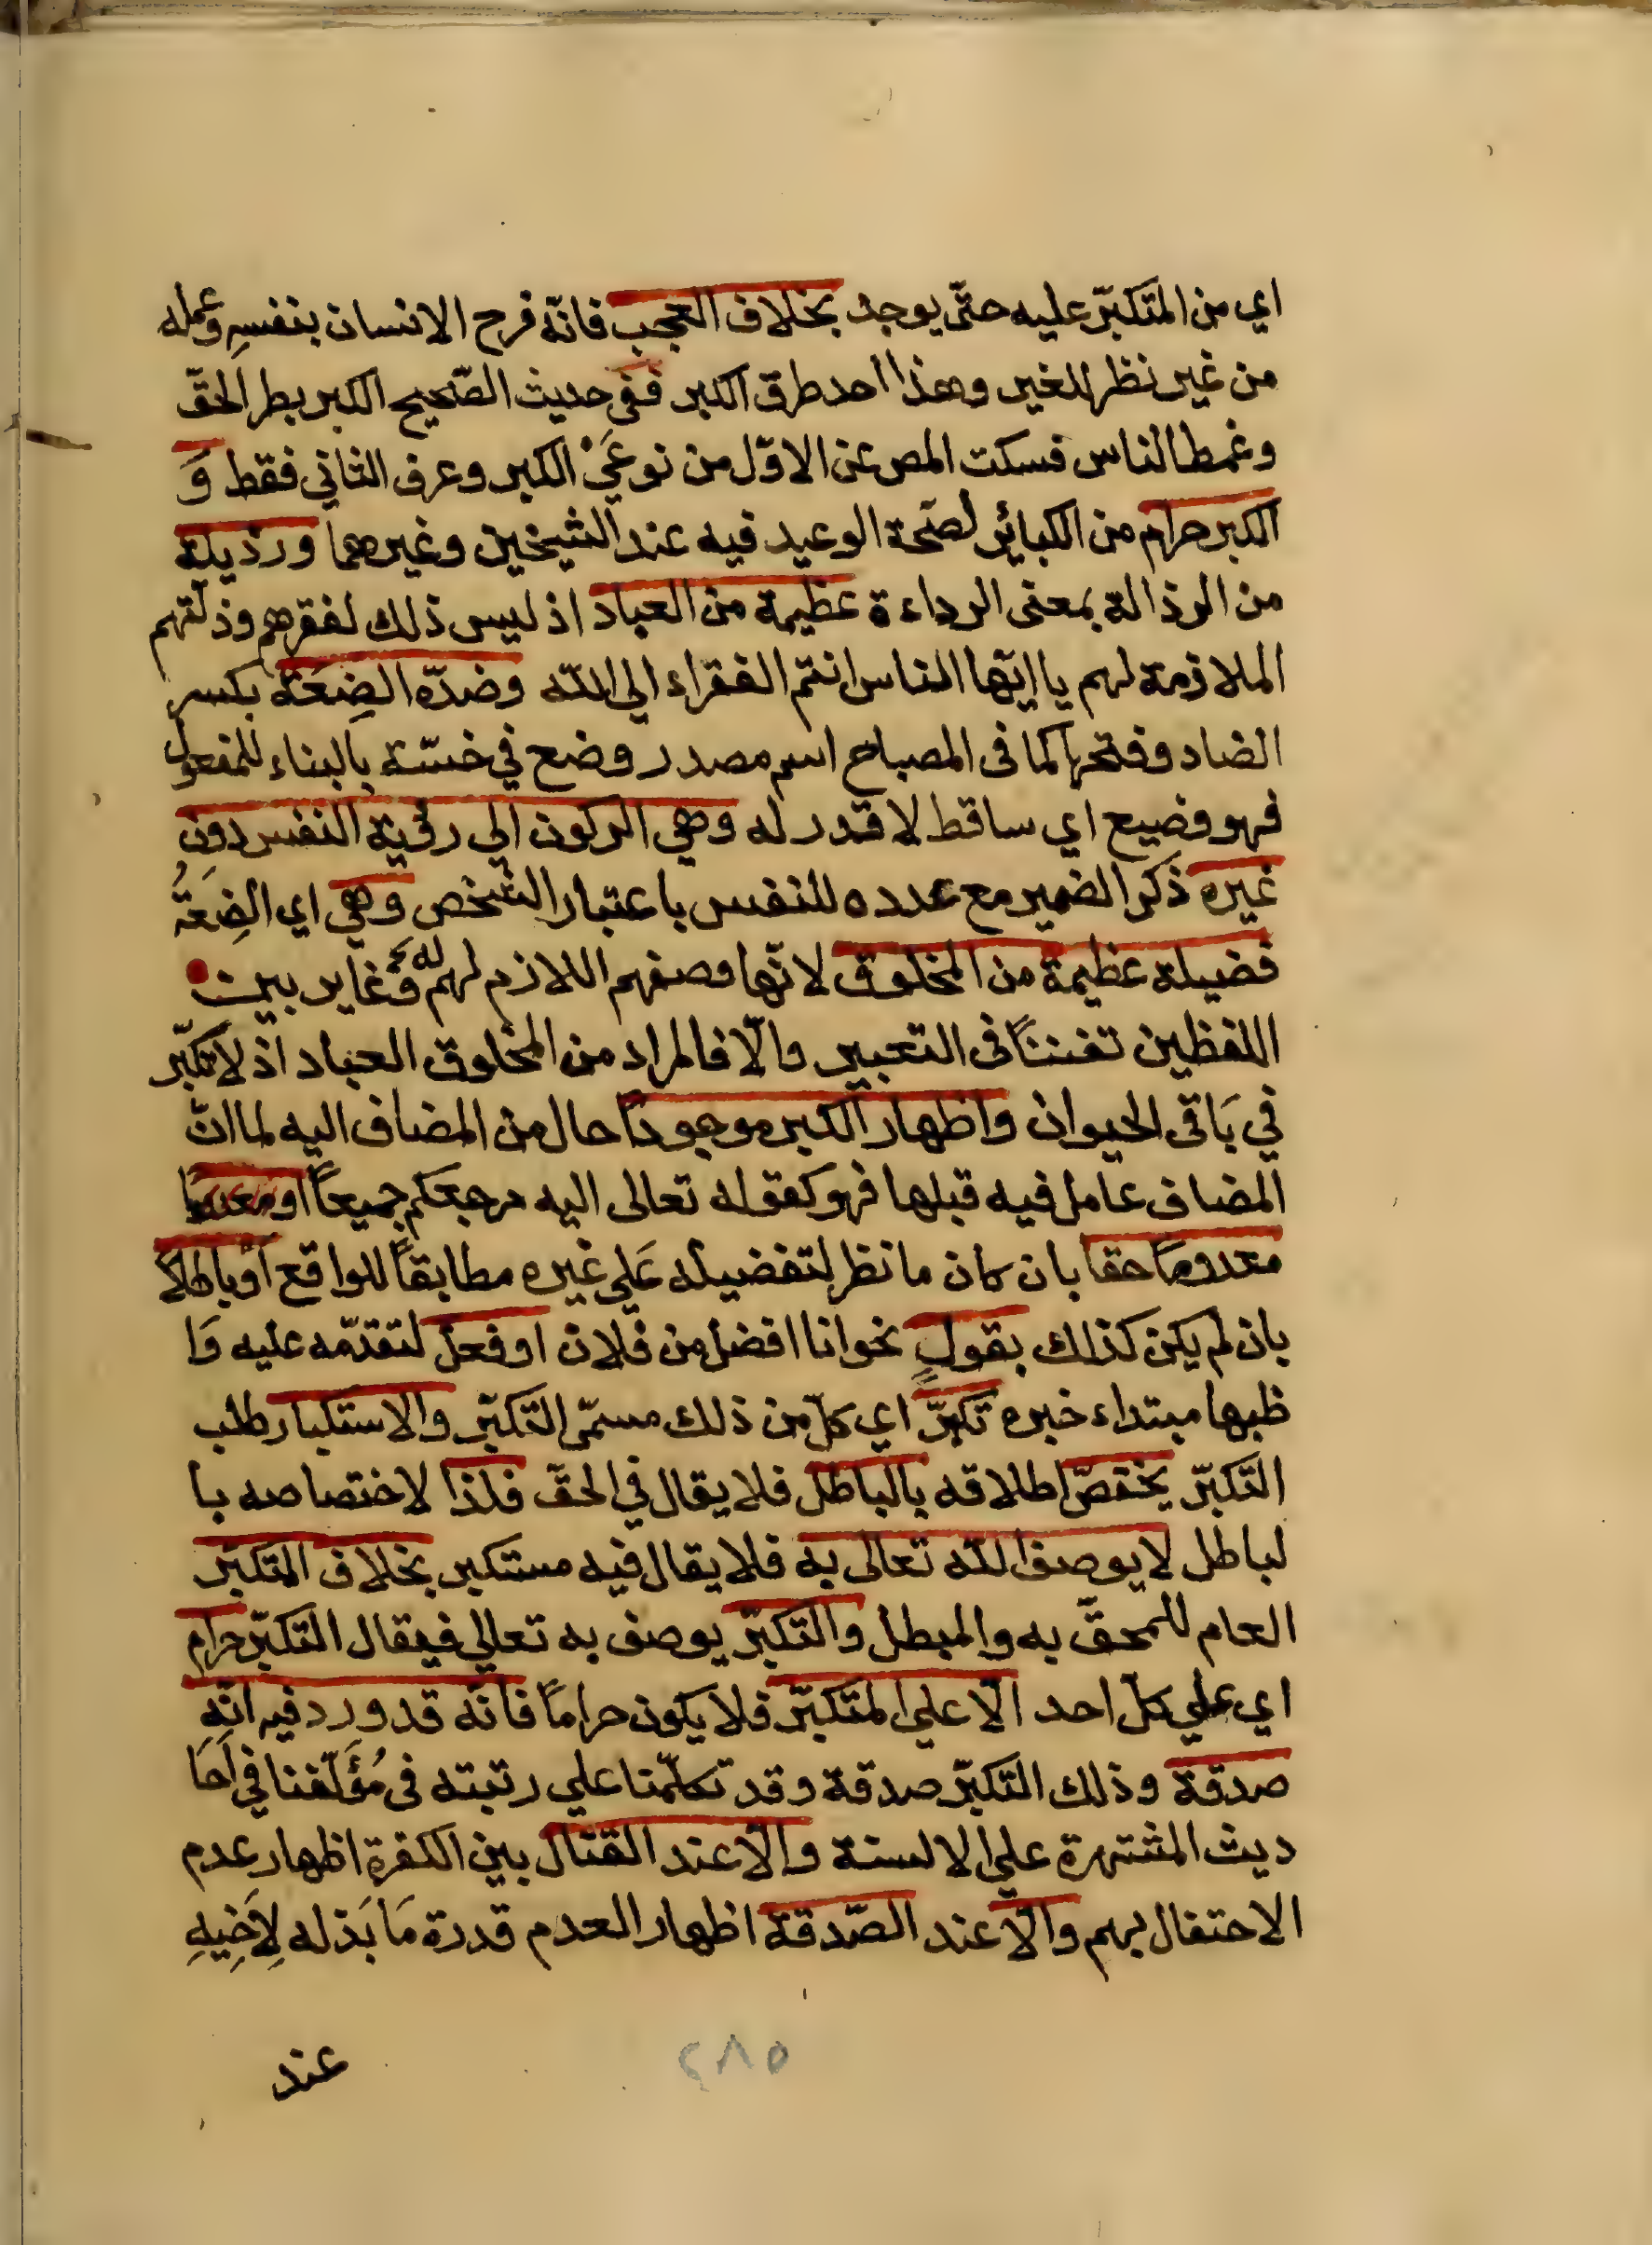 اي من المتكبّر عليه حتّى يوجد بخلاف العجب فانّه فرح الانسان بنفسهِ وعمله
من غير نظر للغير وهذا احد طرق الكبر ففي حديث الصّحيح الكبر بطر الحقّ
وغمط الناس فسكت المص عن الاوّل من نوعَيْ الكبر وعرف الثاني فقط وَ
الكبر حرام من الكبائر لصّحة الوعيد فيه عند الشيخين وغيرهما ورذيلة
من الرذالة بمعنى الرداءة عظيمة من العباد اذ ليس ذلك لفقرهم وذلّتهم
الملازمة لهم يا ايّها الناس انتم الفقراء الي الله وضدّه الضِعَة بكسر
الضاد وفتحها كما فى المصباح اسم مصدر وضع في خسّة بالبناء للمفعول
فهو وضيع اي ساقط لا قدر له وهي الركون الي رؤية النفس دون
غيره ذَكر الضمير مع عدده للنفس باعتبار الشخص وهي اي الضِعَةُ
فضيلة عظيمة من المخلوق لانّها وصفهم اللازم لهم لله وغاير بين
اللفظين تفنناً فى التعبير والّا فالمراد من المخلوق العباد اذ لا تكبّر
في بَاقى الحيوان واظهار الكبر موجوداً حال من المضاف اليه لما انّ
المضاف عامل فيه قبلها فهو كقوله تعالى اليه مرجعكم جميعاً او
معدوماً حقا بان كان ما نظر لتفضيله عَلي غيره مطابقاً للواقع اَو باطلا
بان لم يكن كذلك بقولٍ نحو انا افضل من فلان او فعل لتقدّمه عليه وَا
ظبها مبتداء خبره تكبرٌّ اي كلّ من ذلك مسمّى التكبّر والاستكبار طلب
التّكبّر يختصّ اطلاقه بالباطل فلا يقال في الحقّ فلذا لاختصاصه با
لباطل لا يوصف الله تعالى به فلا يقال فيه مستكبر بخلاف المتكبّر
العام للمحقّ به والمبطل والتكبّر يوصف به تعالي فيقال التّكبّر حرام
اي علي كلّ احد الّا علي المتكبّر فلا يكون حراماً فانّه قد ورد فيه انّه
صدقة وذلك التكبّر صدقة وقد تكلّمنا علي رتبته فى مُؤَلّفنا في اَحَا
ديث المشتهرة علي الالسنة والّا عند القتال بين الكفرة اظهار عدم
الاحتفال بهم والّا عند الصّدقة اظهار العدم قدرة مَا بَذله لِاَخِيهِ
عند
٢٨٥